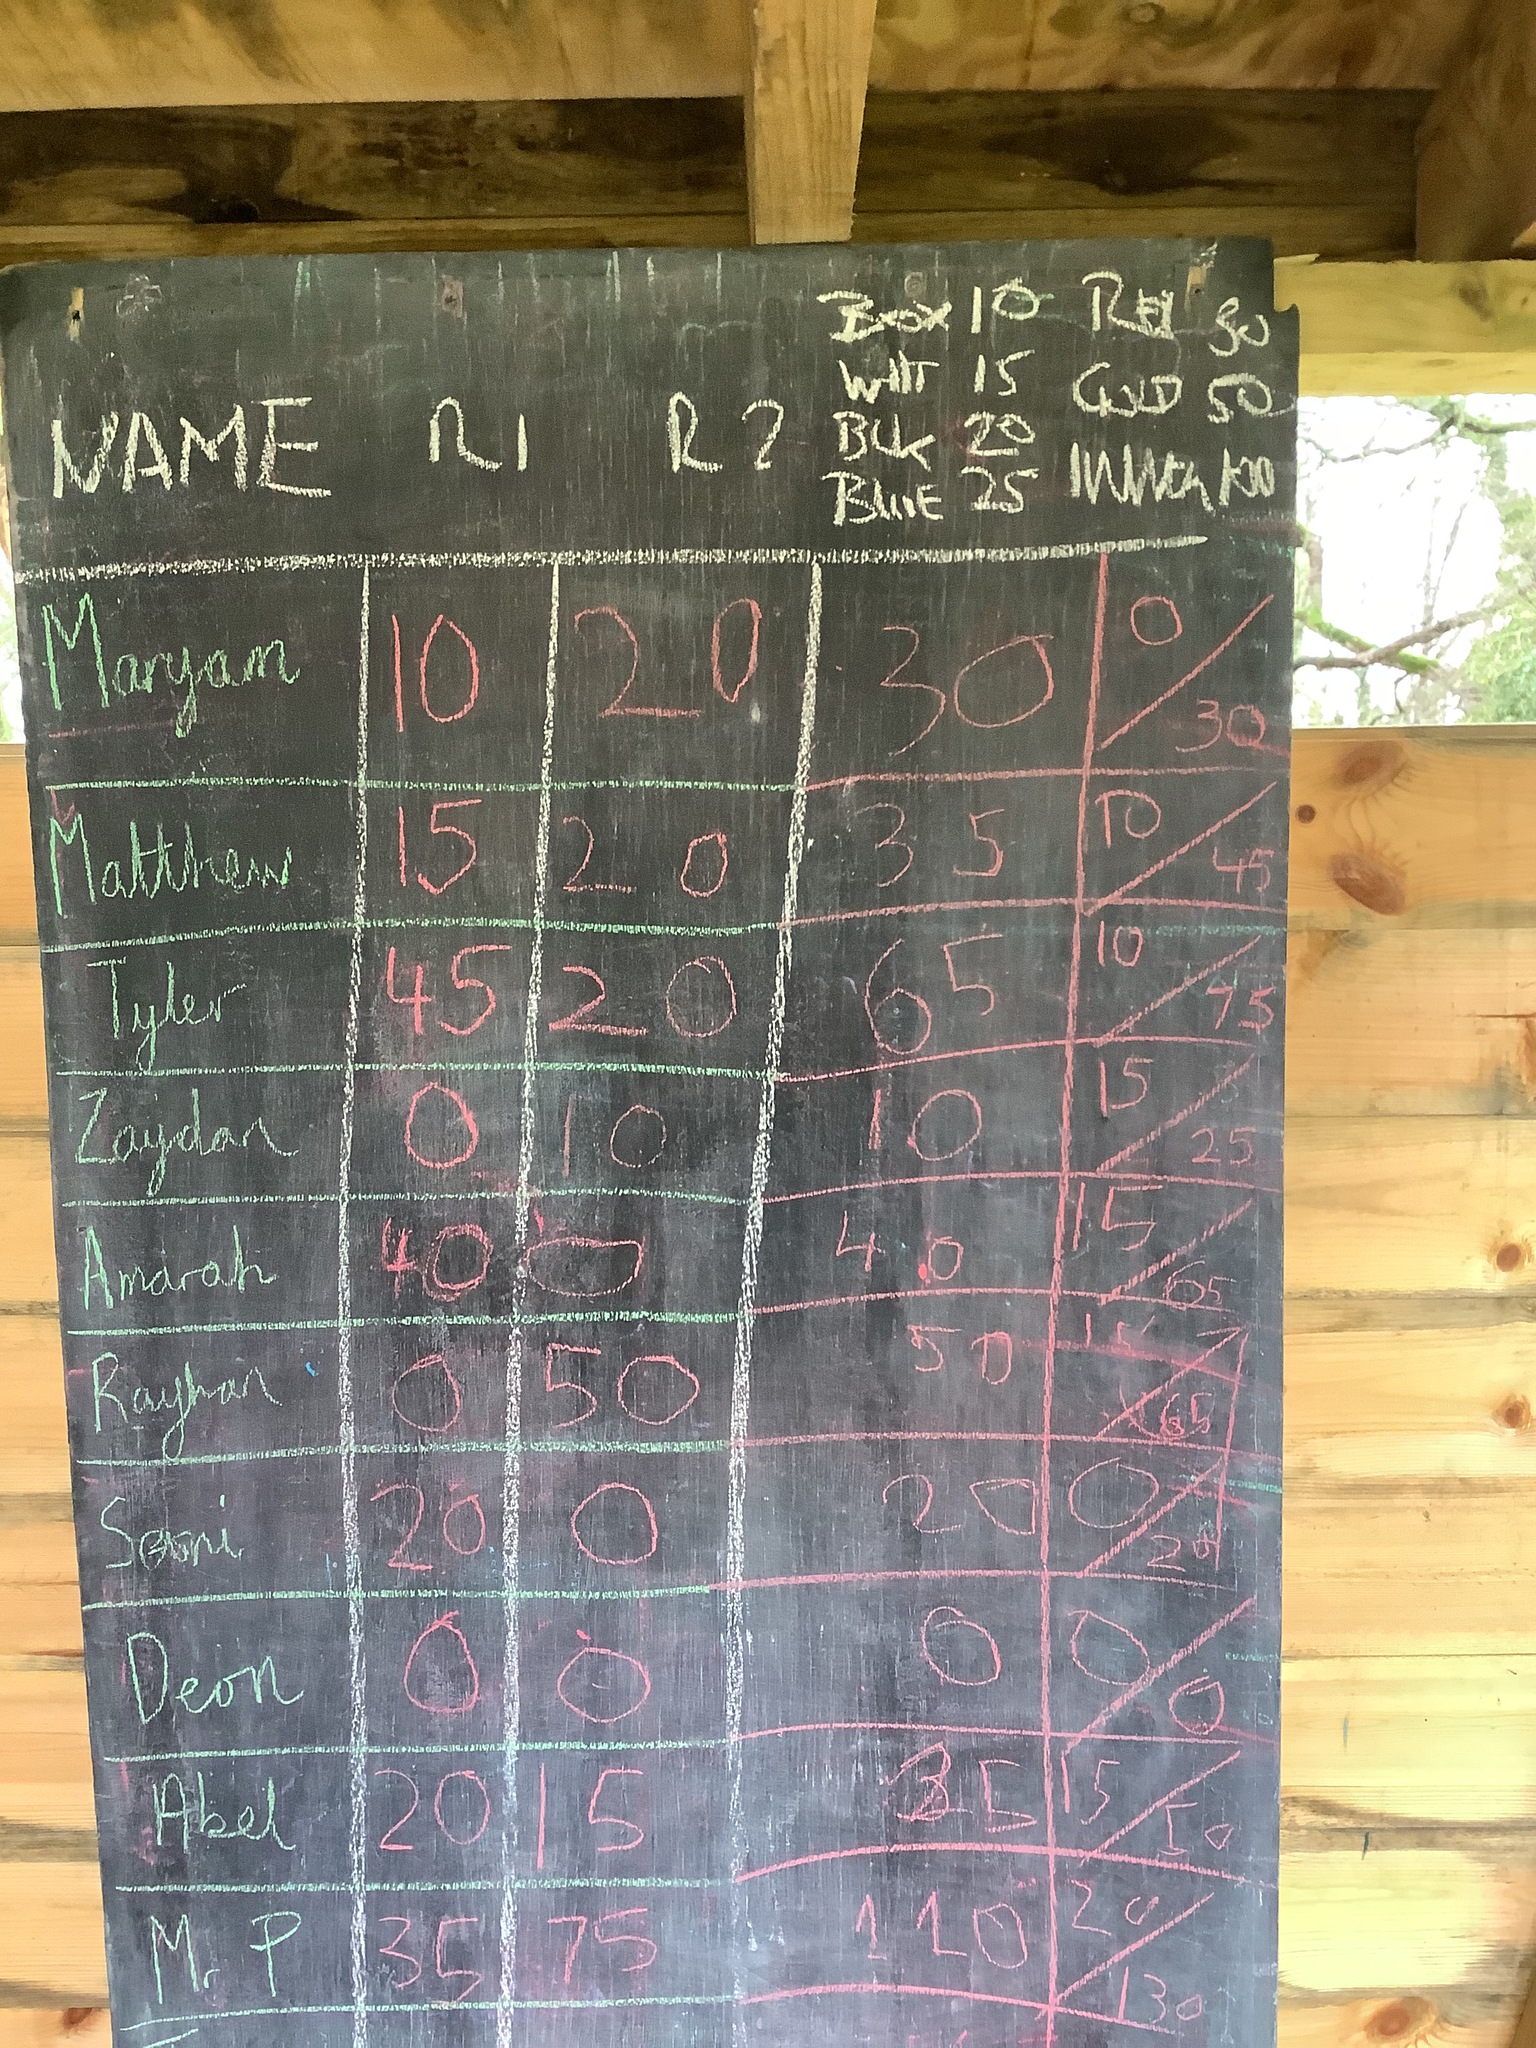 Box 10 Red 30
WHT 15 GOLD 50
NAME R1 R2 BLK 20
BLUE 25 100
Maryam 10 20 30 0/30
Matthew 15 20 35 10/45
Tyler 45 20 65 10/75
Zaydan 0 10 10 15/25
Amarah 40 0 40 15/65
Rayhan 0 50 50 15/65
20 0 20 0/20
Deon 0 0 0 0/0
Abel 20 15 35 15/50
Mr P 35 75 110 20/130